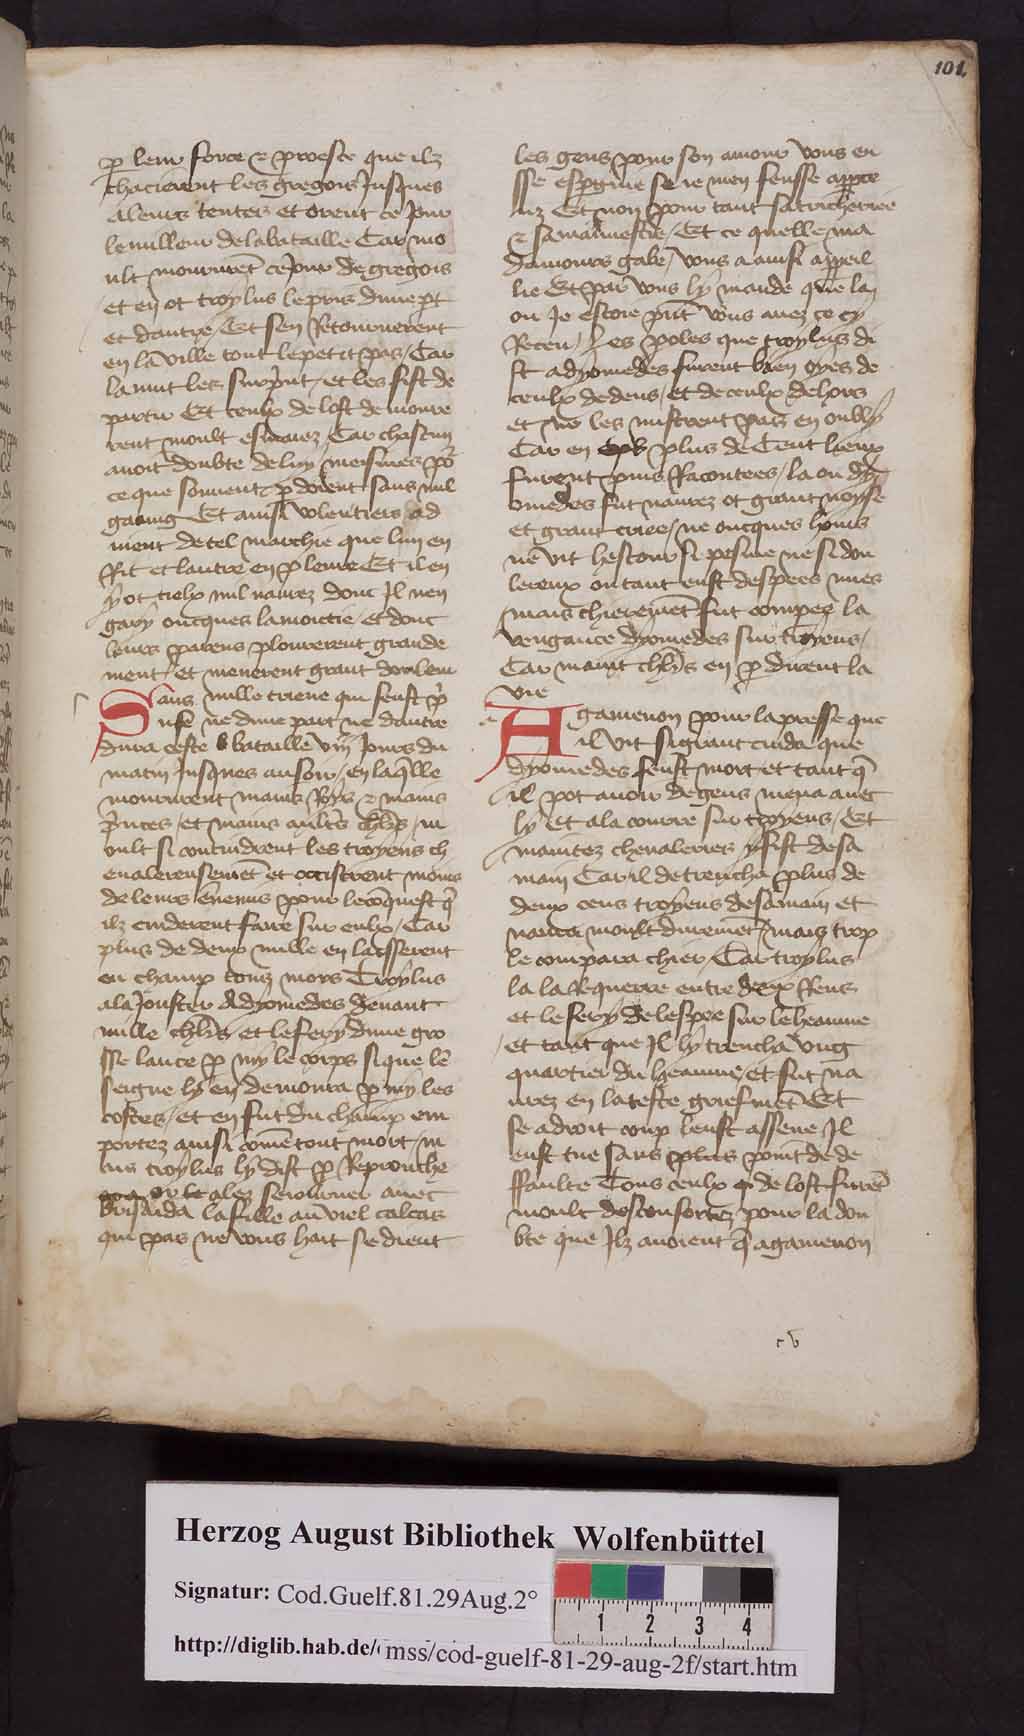 101.
p leur force ⁊ proesce que ilz
chacierent les gregois Jusques
a leurs tentes et orent ce Jour
le milleur de la bataille Car mo
ult moururēt ce Jour de gregois
et en ot troylus le pris dune p̄t
et dautre / Et sen Retournerent
en la ville tout le petit pas / Car
la nuit les surp̄int / et les fist de
partir Et ceulx de lost demoure
rent moult esmaiez / Car chascun
auoit doubte de luy meismes po
ce que souuent p doient sans nul
gaaing Et ainsi volentiers ad
uient de tel marchie que lun en
Rit et lautre en pleure Et il en
y ot tielx mil naurez dont Il nen
gary oncques la moictie / Et dont
leurs parens plourerent grande
ment / et menerent grant douleur
Sans nulle trieue qui feust p̄
nse ne dune part ne dautre
dura ceste bataille viij Jours du
matin Jusques au soir / en laq̄lle
moururent mains Roys ⁊ mains
p̄nces / et mains aultes chl̄rs / m
oult si contindrent les troyens ch
eualereusemēt et occistrent moins
de leurs ēnemis pour le cōquest q̄
ilz cuiderent faire sur eulx / Car
plus de deux mille en laisserent
en champ touz mors Troylus
ala Jouster A dyomedes deuant
mille chl̄rs / et le fery dune gro
sse lance p my le corps si que lē
seigne ly en demoura p my les
costes / et en fut du champ em
portez ainsi cōme tout mort / m
ais troylus ly dist p Reprouche
or le alez seiourner auec
Brisaida la fille au viel calcas
qui pas ne vous hait se dient
les gens pour son amour vous en
sse espgnie se ie men feusse apprce
uz Et non pour tant sa tricherrie
⁊ sa mauuestie / Et ce quelle ma
damours gabe / vous a ainsi appeil
lie Et par vous ly mande que la
ou Je estoie p̄nt vous auez ce cy
Receu / Les poles que troylus di
st a dyomedes furent bien oyes de
ceulx dedens / et de ceulx dehors
et ne les mistrent pas en oubly
Car en plus de Cent lieux
furent puis Racontees / la ou dy
omedes fut naurez ot grant noyse
et grant criee / ne oncques homs
ne vit hestour si pesme ne si dou
lereux ou tant eust despees nues
mais chieremēt fut compee la
vengance dyomedes sur troyens /
Car maint chl̄rs en p dirent la
vie
Agamenon pour la presse que
il vit si grant cuida que
dyomedes feust mort et tant q̄
il pot auoir de gens mena auec
ly Et ala courre sur troyens / Et
maintez cheualeries y fist de sa
main Car il detrencha plus de
deux cens troyens de sa main et
naura moult durement / mais trop
le compara chier / Car troylus
la la Requerre entre deux Rens
et le fery de lespee sur le heaume
/ et tant que Il ly trencha vng
quartier du heaume / et fut na
urez en la teste griefmēt Et
se a droit coup leust assene Il
eust tue sans plus point de de
ffaulte Tous ceulx q de lost furēt
moult desconfortez pour la dou
bte que Ilz auoient q̄ agamenon
Herzog August Bibliothek Wolfenbüttel
Signatur: Cod.Guelf.81.29Aug.2°
http://diglib.hab.de/
mss/cod-guelf-81-29-aug-2f/start.htm
1 2 3 4